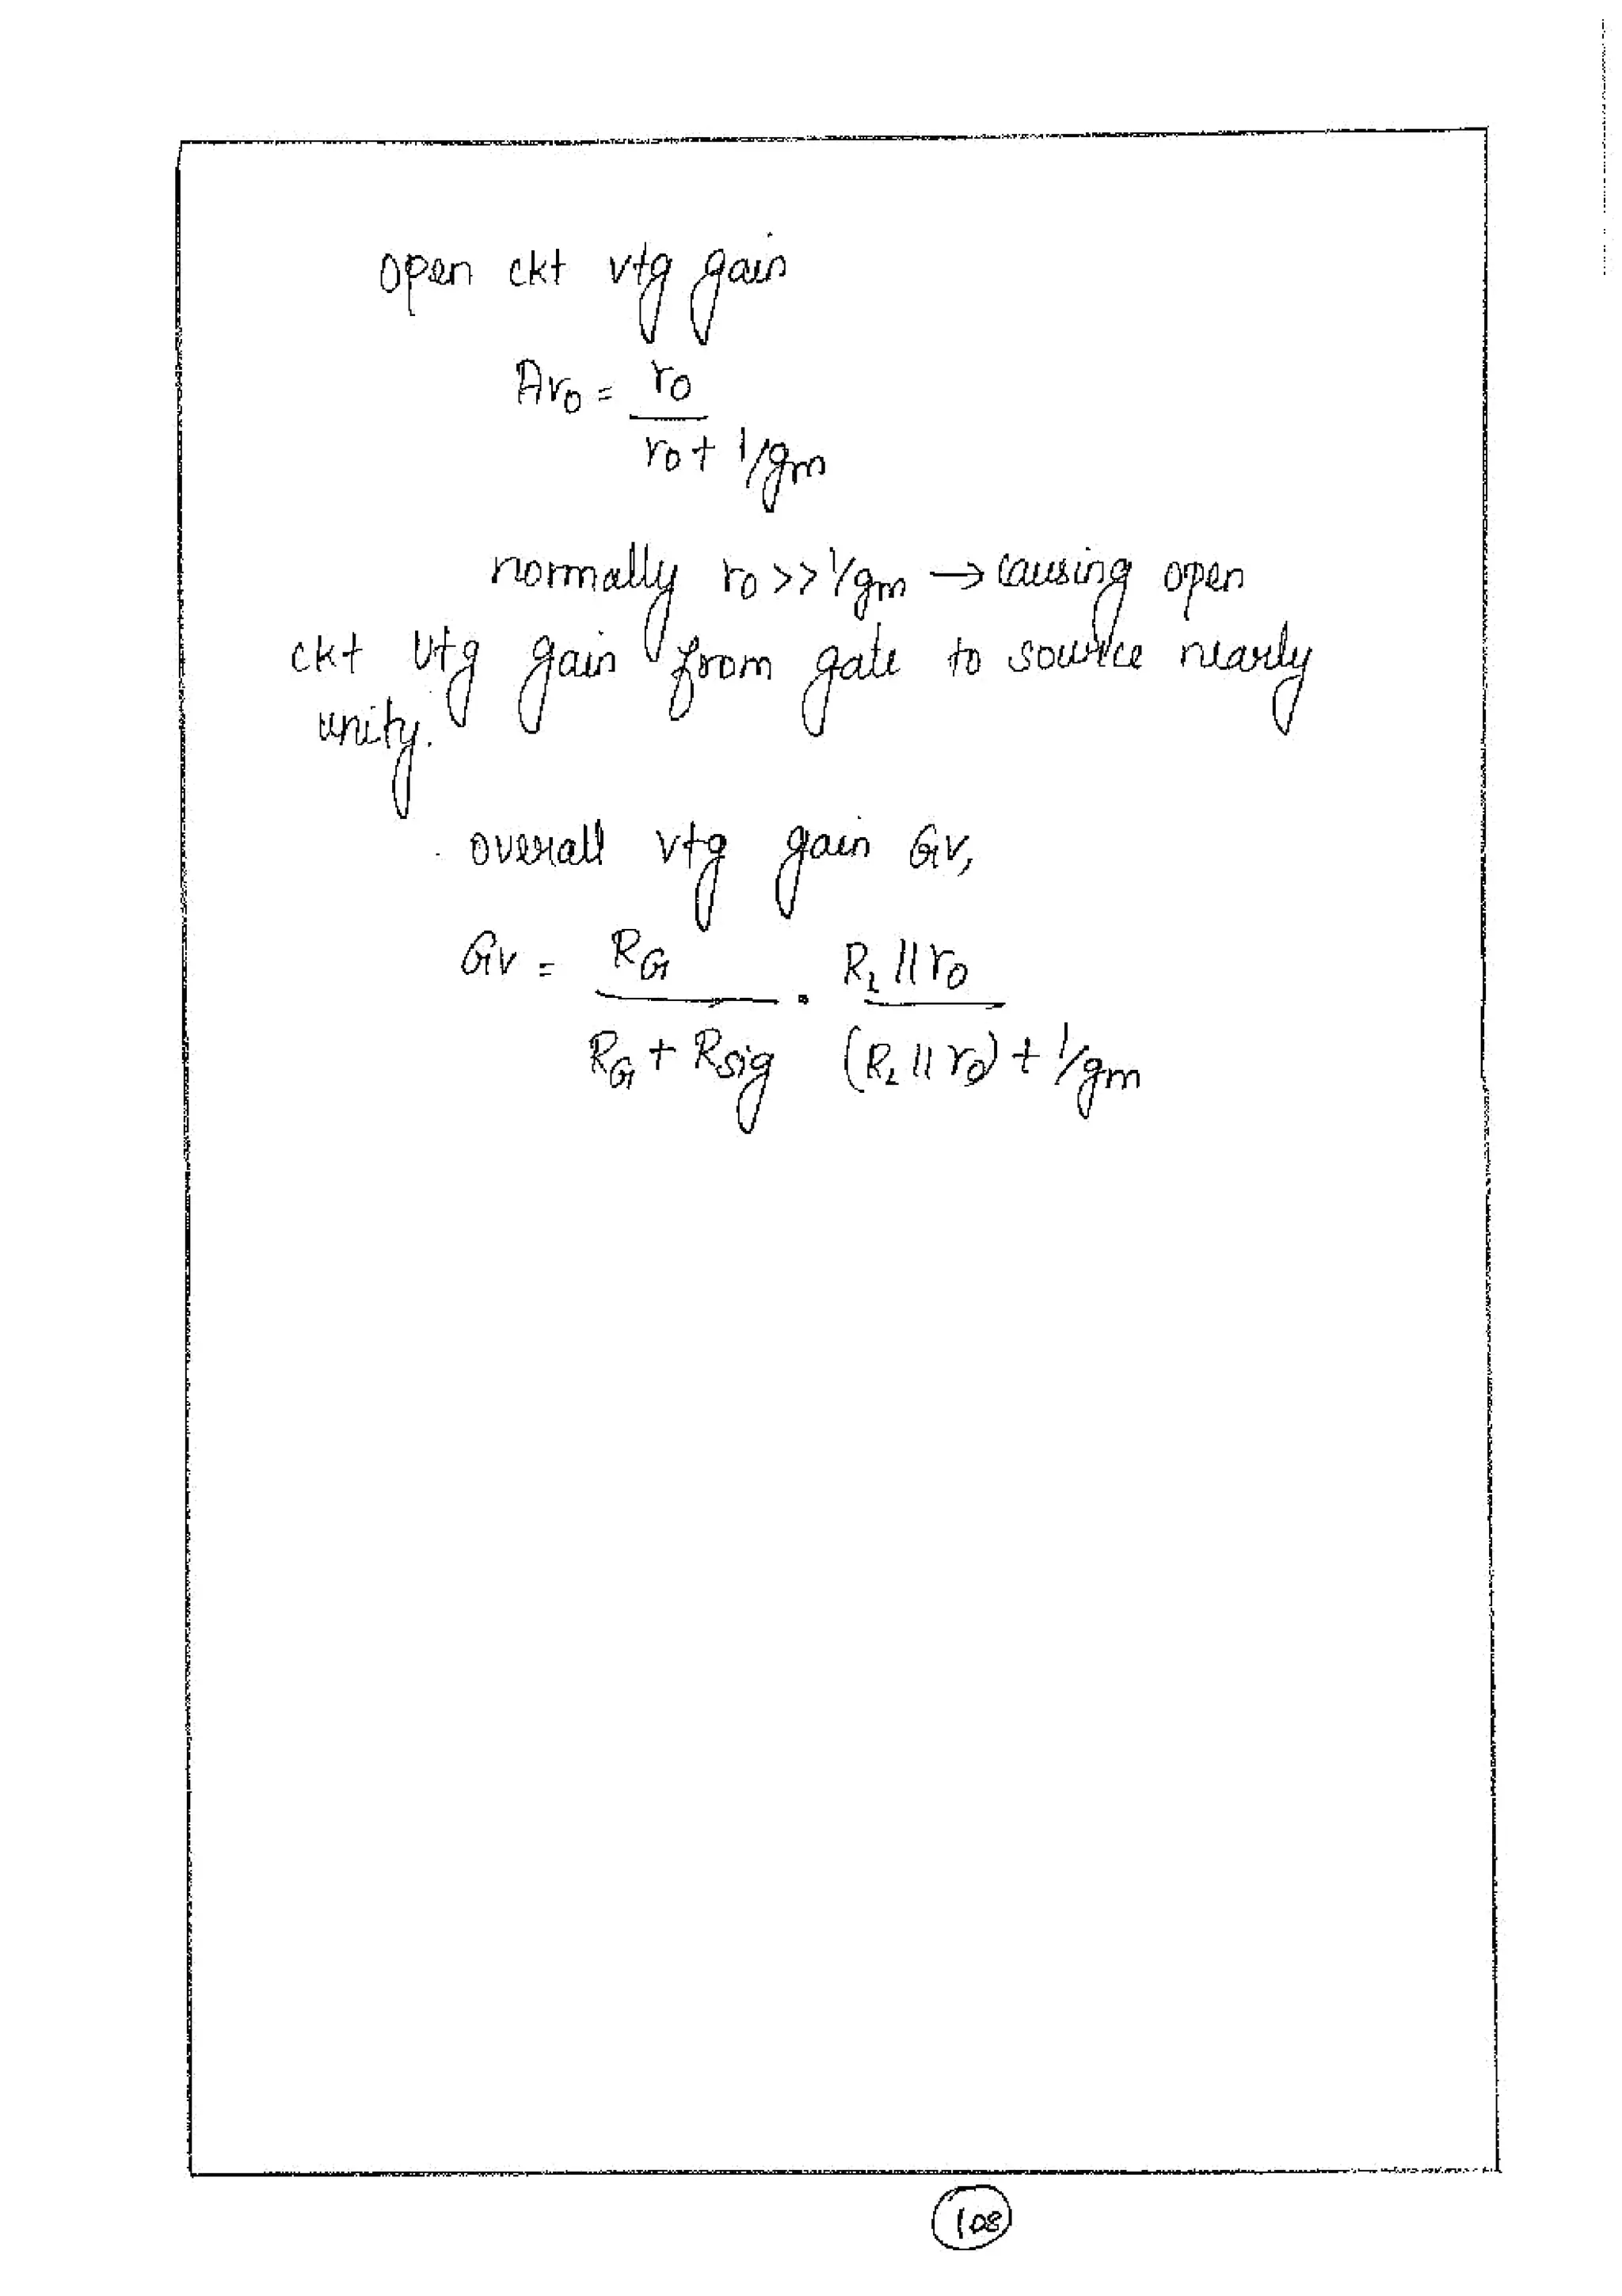 open ckt vtg gain
Avo = ro
ro + 1/gm
normally ro >> 1/gm → causing open
ckt vtg gain from gate to source nearly
unity.
overall vtg gain Gv,
Gv = RG / RG + Rsig . RL || ro / (RL || ro) + 1/gm
108